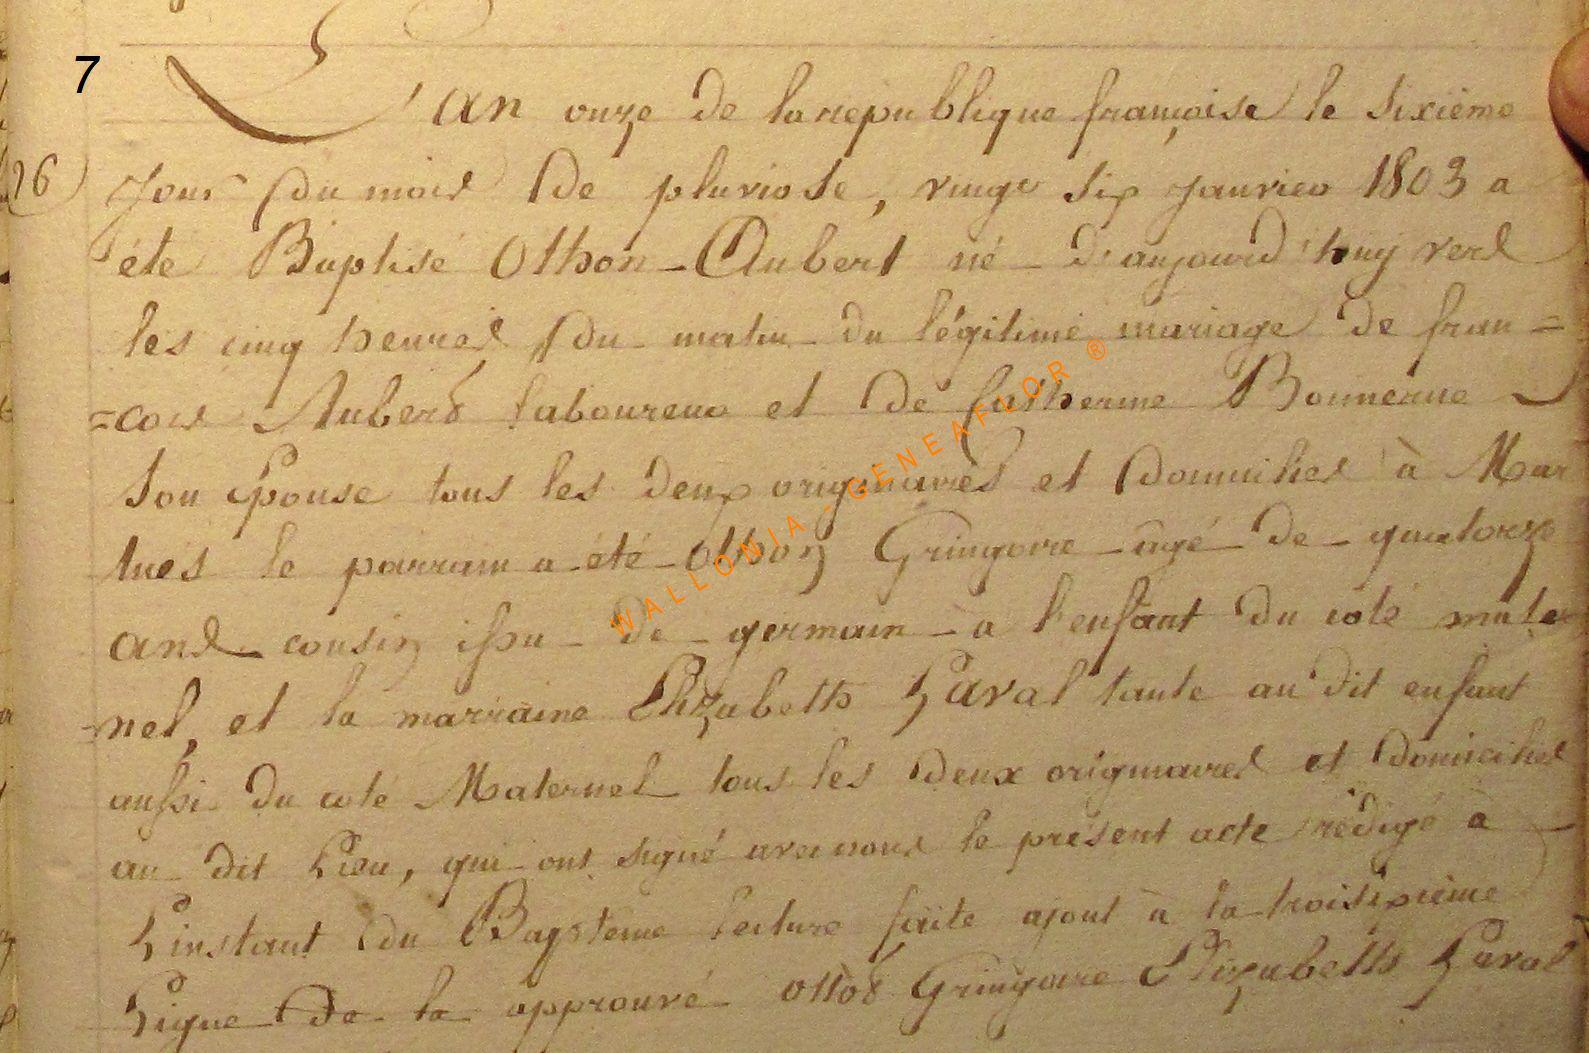 7
L'an onze de la republique françoise le sixième
26) Jour du mois de pluviose, vingt six janvier 1803 a
été Baptisé Othon-Aubert né d'aujourd'huy vers
les cinq heures du matin du légitime mariage de fran=
=cois Aubert laboureur et de Catherine Bonnerue
son Epouse tous les deux originaires et domiciliés à Mar
tues le parrain a été Othon Gringoire agé de quatorze
ans cousin issu de germain a l'enfant du coté mater
=nel, et la marraine Elizabeth Laval tante au dit enfant
aussi du coté Maternel tous les deux originaires et domiciliés
au dit Lieu, qui ont signé avec nous le présent acte rédigé à
L'instant du Bapteme lecture faite ajout à la troisixième
Ligne de la approuvé Gringoire Elizabeth Laval
WALLONIA-GENEAFLOR ®